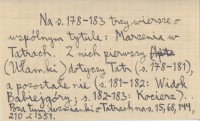 Na s. 178-183 trzy wiersze o
wspólnym tytule: Marzenia w
Tatrach. Z nich pierwszy
(Ułamki) dotyczy Tatr (s. 178-181),
a pozostałe nie (s. 181-182: Widok
Babiejgóry; s. 182-183: Kocierz).
Poza tym wzmianki o Tatrach na s. 15, 68, 144,
210 i 351.